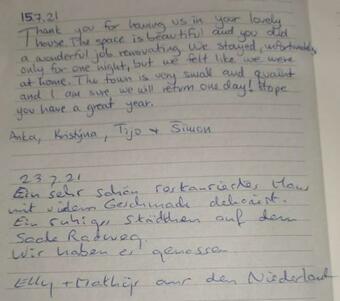 15.7.21
Thank you for having us in your lovely
house. The space is beautiful and you did
a wonderful job renovating. We stayed, unfortunately,
only for one night, but we felt like we were
at home. The town is very small and quaint
and I am sure we will return one day! Hope
you have a great year.
Anka, Kristýna, Tijo + Šimon
23.7.21
Ein sehr schön restauriertes Haus
mit vielem Geschmack dekoriert.
Ein ruhiges Städtchen auf dem
Saale Radweg.
Wir haben es genossen
Elly + Mathijs aus den Niederland